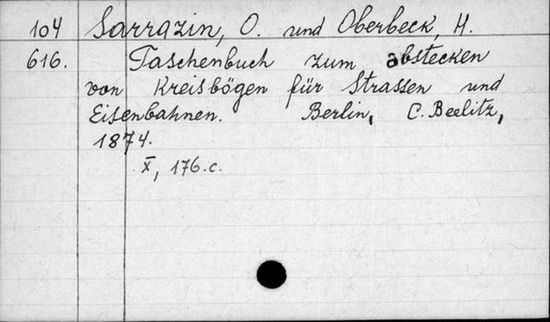 104 Sarrazin, O. und Oberbeck, H.
616. Taschenbuch zum abstecken
von Kreisbögen für Strassen und
Eisenbahnen. Berlin, C. Beelitz,
1874.
X, 176.c.